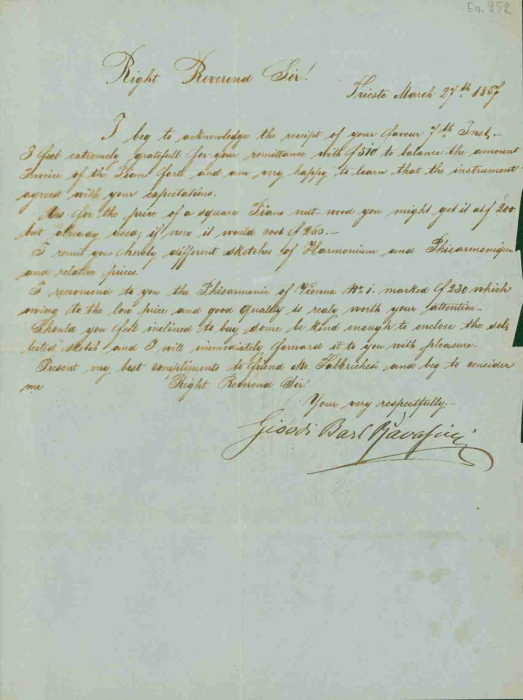 En. 252
Right Reverend Sir!
Trieste March 27th 1857
I beg to acknowledge the receipt of your favour 7th Inst.-
I feel extremely gratefull for your remittance with f 510 to balance the amount
Invoice of the Piano forte and am very happy to learn that the instrument
agreed with your expectations.
As for the price of a square Piano nut wood you might get it at f 200
but already used; if new it would cost f 260.-
I remit you hereby different sketches of Harmonium and Phisarmoniques
and relative prices.
I recomend to you the Phisarmonic of Vienna No 1. marked f 230 which
owing to the low price and good quality is realy worth your attention.
Should you feel inclined to buy some be kind enough to inclose the sel,
lected sketch and I will immediately forward it to you with pleasure.
Present my best compliments to Friend Mr Fabbrichesi and beg to consider
me Right Reverend Sir!
Your very respectfully-